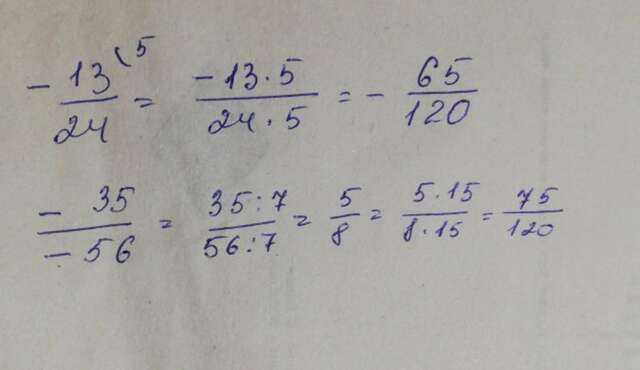 -13/24 (5 = -13·5/24·5 = - 65/120
-35/-56 = 35:7/56:7 = 5/8 = 5·15/8·15 = 75/120